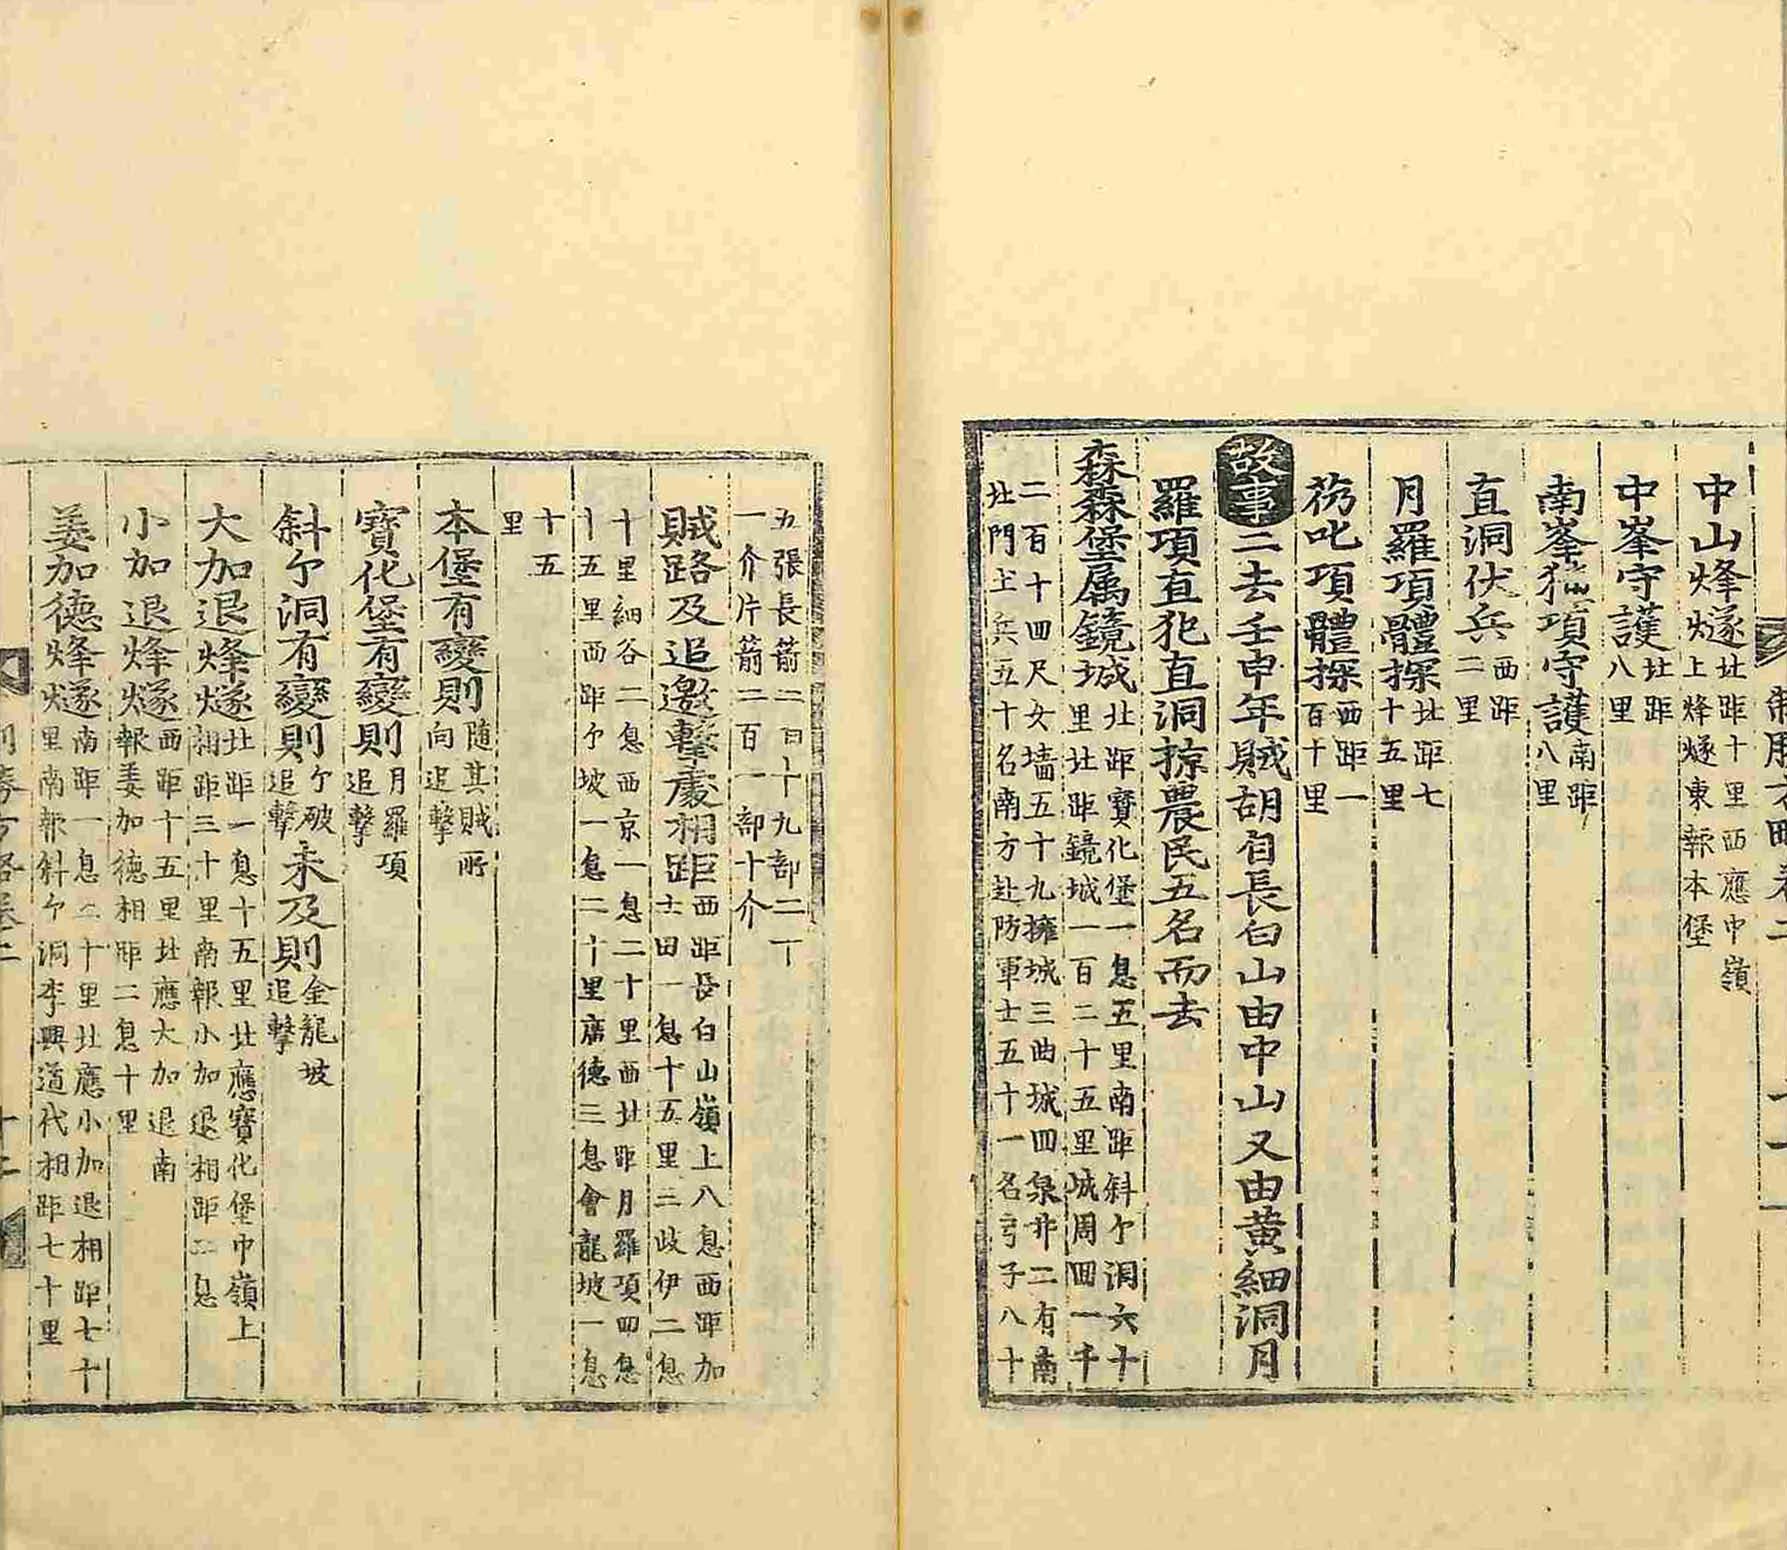 制勝方略卷二 十一
中山烽燧北距十里西應中嶺
上烽燧東報本堡
中峯守護北距
八里
南峯獐項守護南距
八里
直洞伏兵西距
二里
月羅項體探北距七
十五里
芿叱項體探西距一
百十里
故事二去壬申年賊胡自長白山由中山又由黃細洞月
羅項直犯直洞掠農民五名而去
森森堡属鏡城北距寶化堡一息五里南距斜亇洞六十
里北距鏡城一百二十五里城周回一千
二百十四尺女墻五十九擁城三曲城四泉井二有南
北門土兵五十名南方赴防軍士五十一名弓子八十
五張長箭二百十九部二丁
一介片箭二百一部十介
賊路及追邀擊處相距西距長白山嶺上八息西距加
士田一息十五里三歧伊二息
十里細谷二息西京一息二十里西北距月羅項四息
十五里西距亇坡一息二十里廣德三息會龍坡一息
十五
里
本堡有變則随其賊所
向追擊
寶化堡有變則月羅項
追擊
斜亇洞有變則亇破
追擊未及則金龍坡
追擊
大加退烽燧北距一息十五里北應寶化堡中嶺上
相距三十里南報小加退相距二息
小加退烽燧西距十五里北應大加退南
報姜加德相距二息十里
姜加德烽燧南距一息二十里北應小加退相距七十
里南報斜亇洞李興道代相距七十里
制勝方略卷二 十二